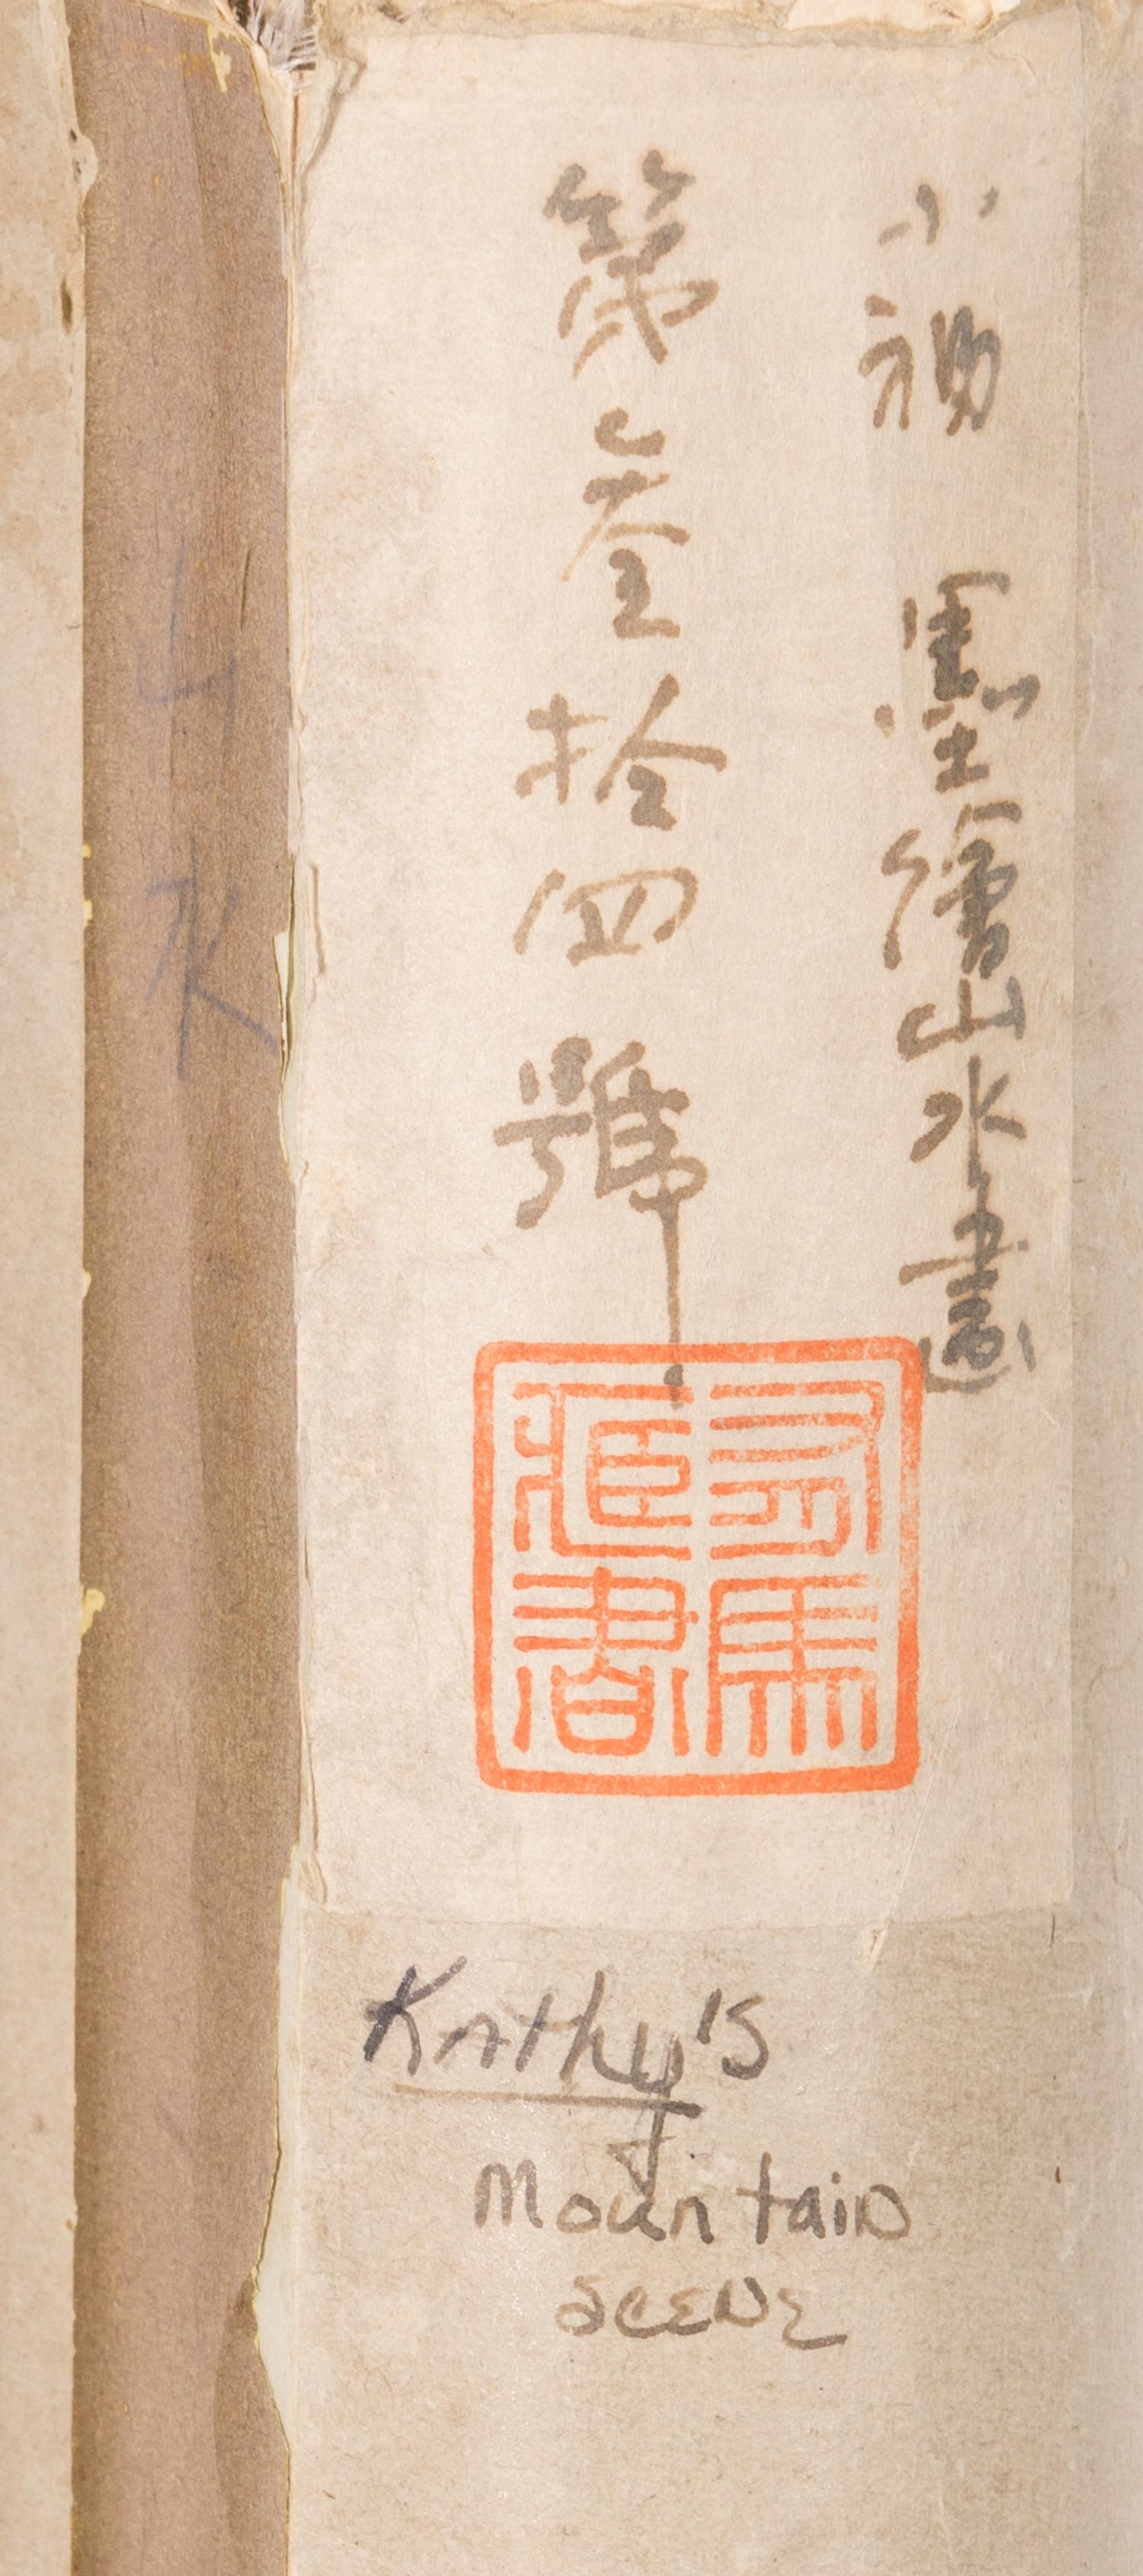 小
墨繪山水畫
第叁拾四號
馬
藏書
山水
Kathy's
Mountain
scene